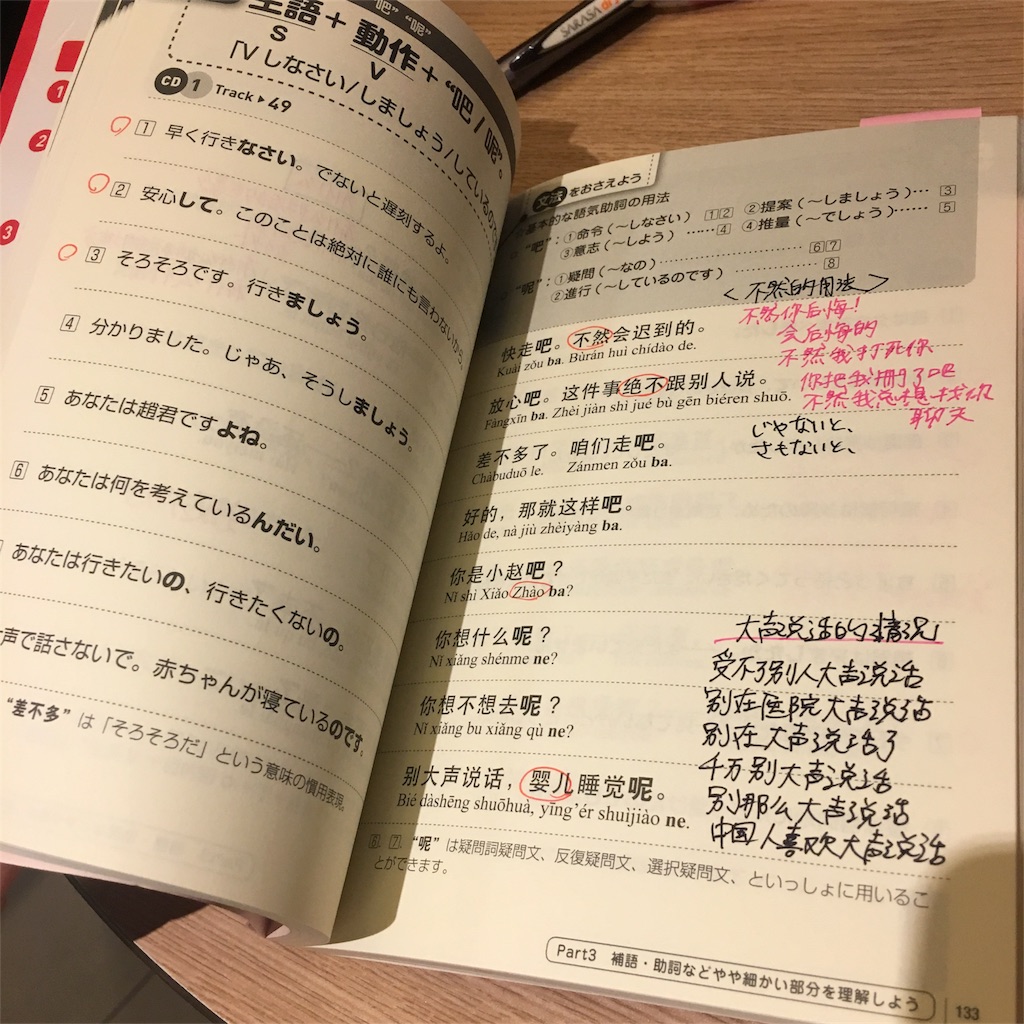 "吧" "呢"
主語 + 動作 + "吧 / 呢"。
S V
「V しなさい/しましょう/しているの
CD 1 Track ▶ 49
1 早く行きなさい。でないと遅刻するよ。
2 安心して。このことは絶対に誰にも言わないから
3 そろそろです。行きましょう。
4 分かりました。じゃあ、そうしましょう。
5 あなたは趙君ですよね。
6 あなたは何を考えているんだい。
あなたは行きたいの、行きたくないの。
声で話さないで。赤ちゃんが寝ているのです。
"差不多" は「そろそろだ」という意味の慣用表現。
1
2
3
SARASA
文法 をおさえよう
基本的な語気助詞の用法
"吧"：①命令（〜しなさい） 1 2 ②提案（〜しましょう）… 3
③意志（〜しよう） …… 4 ④推量（〜でしょう）…… 5
"呢"：①疑問（〜なの）…………………… 6 7
②進行（〜しているのです）…………… 8
快走吧。不然会迟到的。
Kuài zǒu ba. Bùrán huì chídào de.
放心吧。这件事绝不跟别人说。
Fàngxīn ba. Zhèi jiàn shì jué bù gēn biéren shuō.
差不多了。咱们走吧。
Chàbuduō le. Zánmen zǒu ba.
好的，那就这样吧。
Hǎo de, nà jiù zhèiyàng ba.
你是小赵吧？
Nǐ shì Xiǎo Zhào ba?
你想什么呢？
Nǐ xiǎng shénme ne?
你想不想去呢？
Nǐ xiǎng bu xiǎng qù ne?
别大声说话，婴儿睡觉呢。
Bié dàshēng shuōhuà, yīng'ér shuìjiào ne.
6、7、"呢" は疑問詞疑問文、反復疑問文、選択疑問文、といっしょに用いるこ
とができます。
<不然的用法>
不然你后悔！
会后悔的
不然我打死你
你把我删了吧
不然我总想找你
聊天
じゃないと、
さもないと、
大声说话的情况
受不了别人大声说话
别在医院大声说话
别在大声说话了
千万别大声说话
别那么大声说话
中国人喜欢大声说话
Part3 補語・助詞などやや細かい部分を理解しよう
133